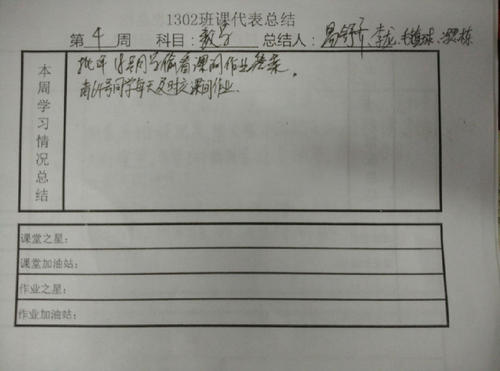 1302班课代表总结
第 4 周 科目：数学 总结人：易舒齐、李龙、
本周学习情况总结
批评18号同学偷看课间作业答案。
南64号同学每天及时交课间作业.
课堂之星：
课堂加油站：
作业之星：
作业加油站：